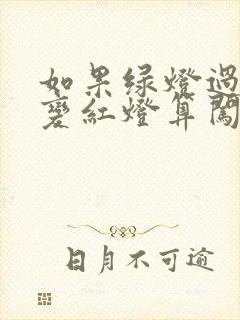 如果绿燈過
變紅燈算闖
日月不可逾